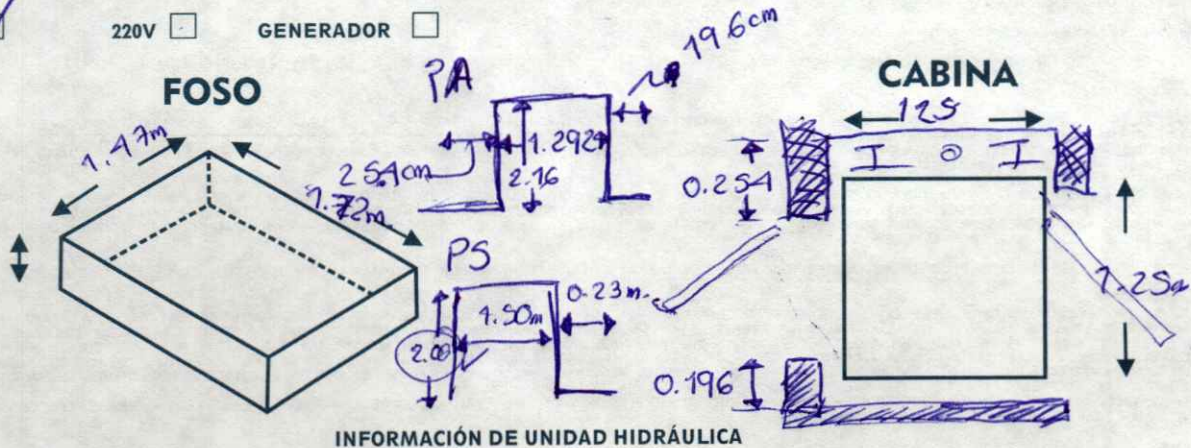 220V GENERADOR
FOSO
1.47m
1.72m
PA
19.6cm
25.4cm
1.292
2.16
PS
0.23m.
1.50m
2.00
CABINA
125
0.254
1.25
0.196
INFORMACIÓN DE UNIDAD HIDRÁULICA